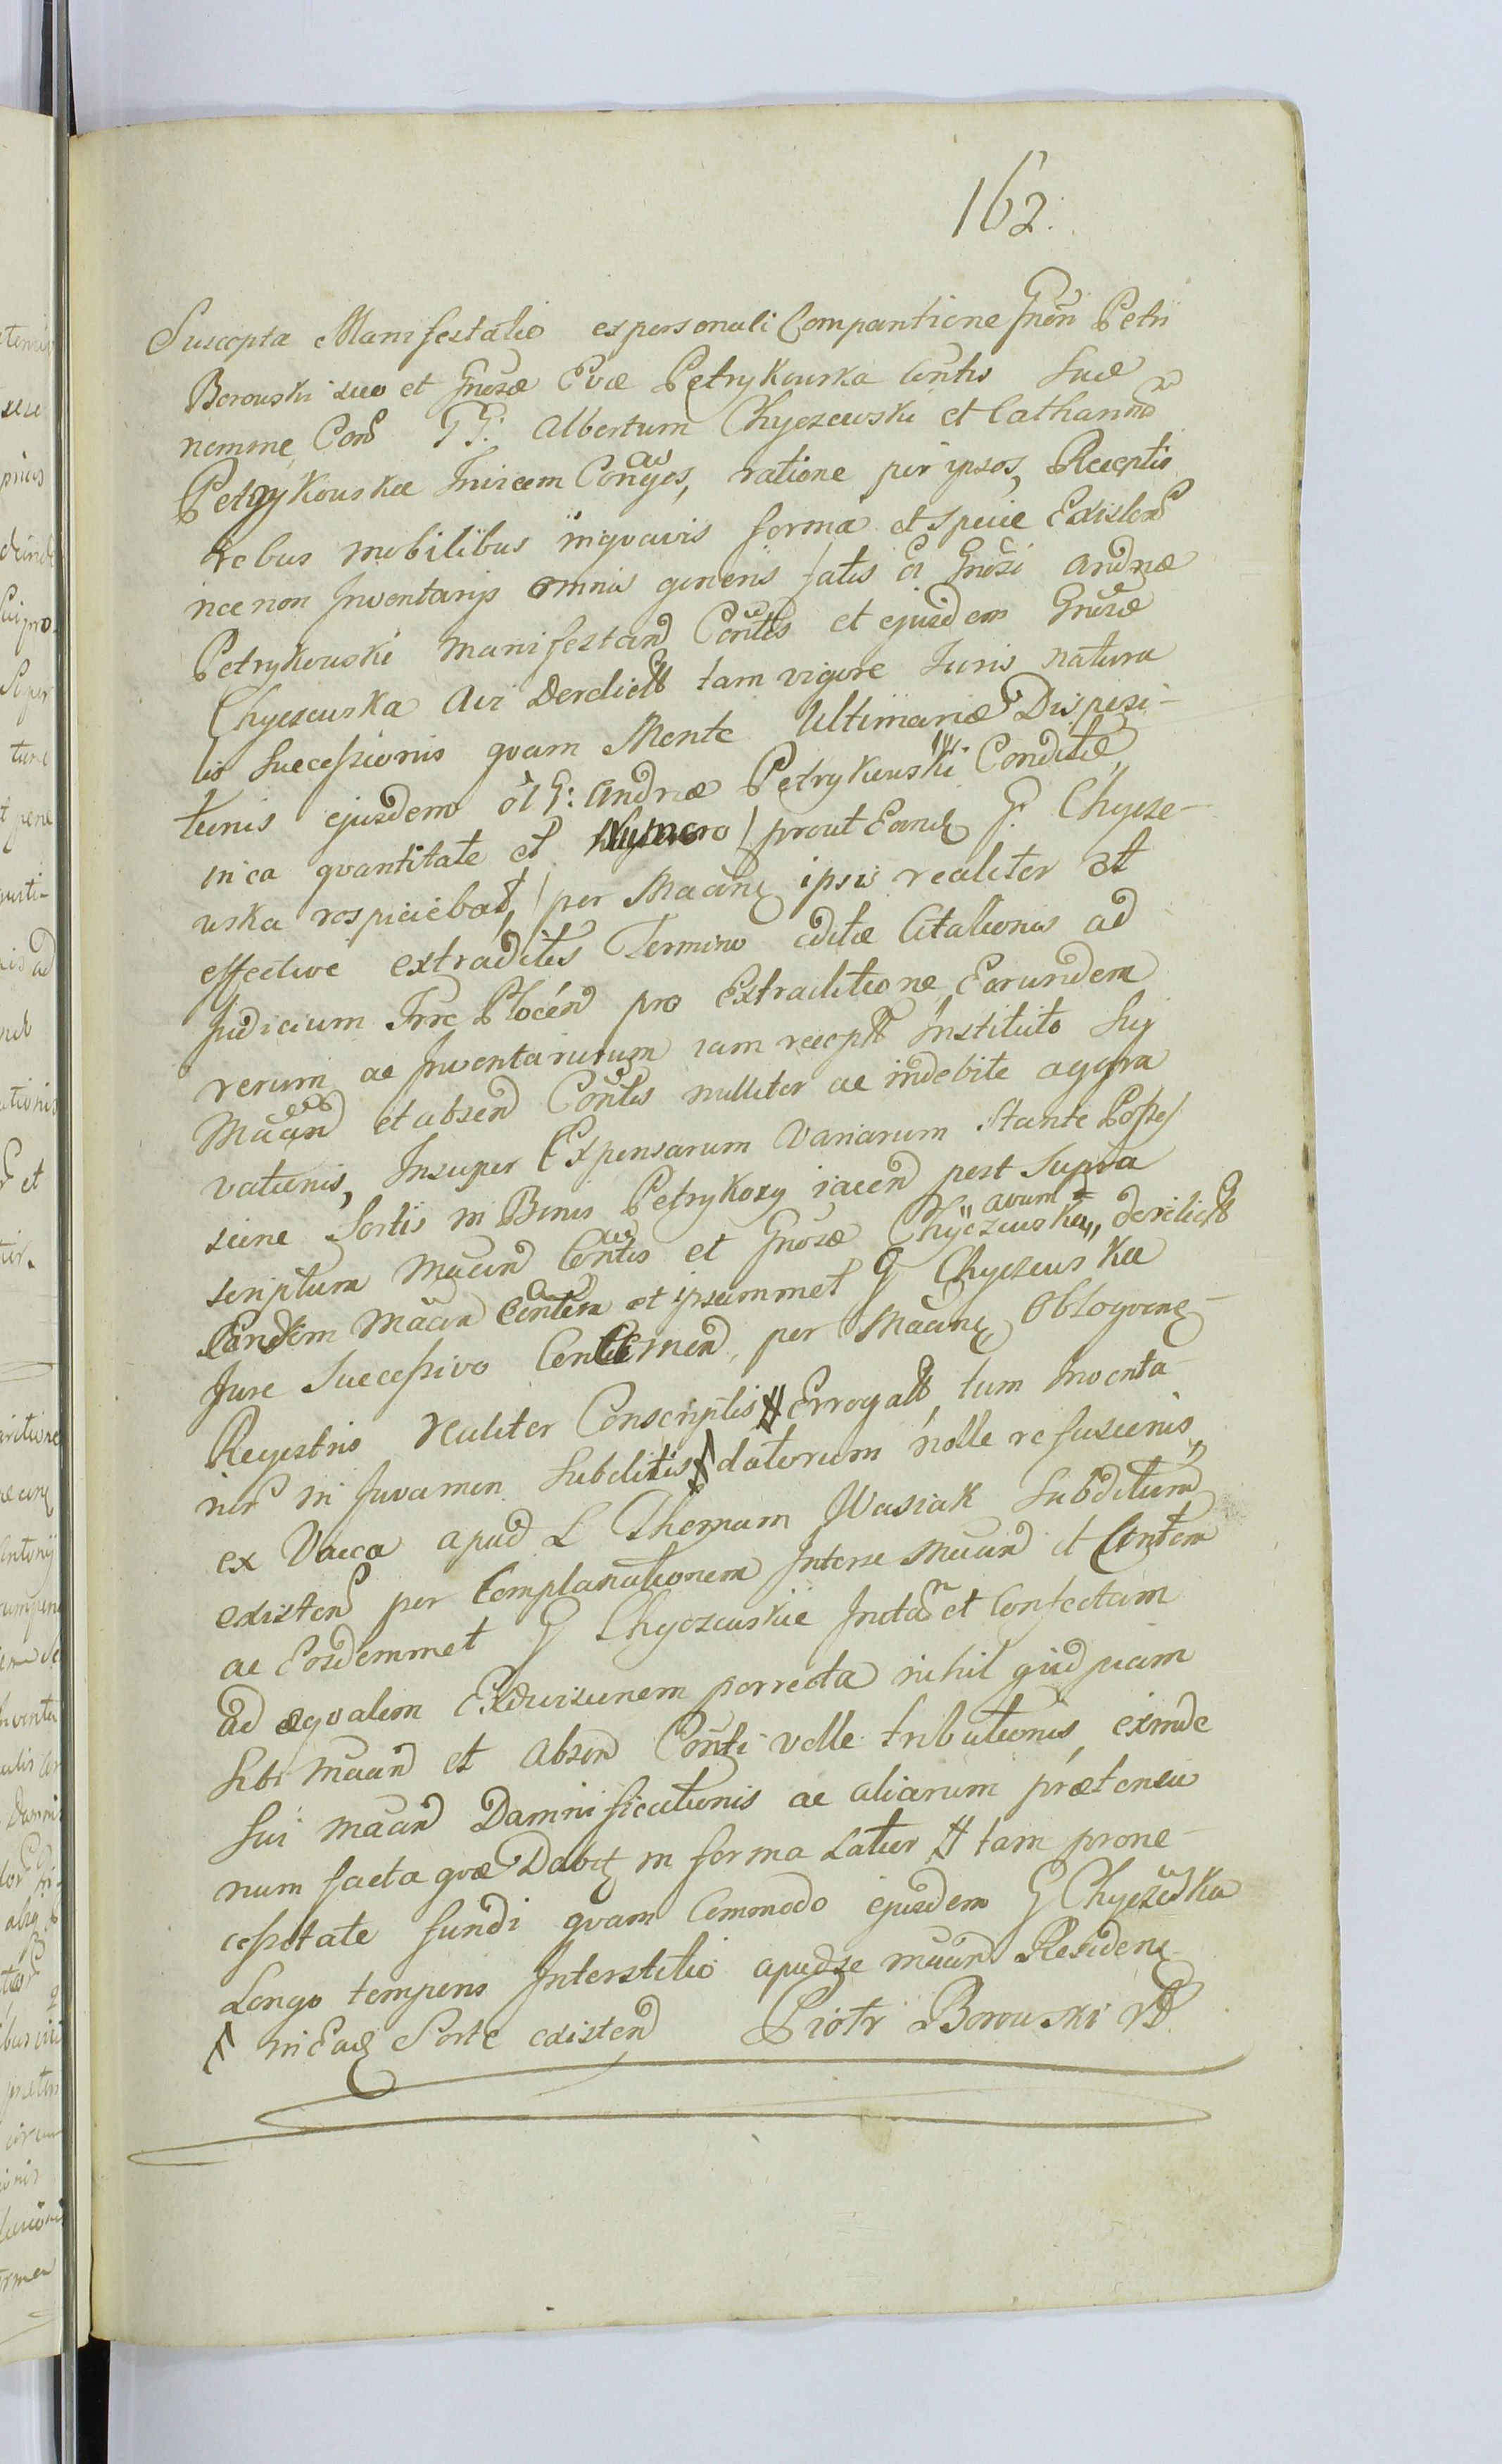 162.
Suscepta Manifestatio ex personali Comparitione Gnõsi Petri
Borouski suo et Gnosæ Evæ Petrykouska Contis suæ
nomine Con͠ GG: Albertum Chyczewski et Catharinā
Petrykouska Invicem Con̄ges, ratione per ipsos, Receptis
rebus mobilibus inqvavis forma et specie Existen͠
nec non Inventarijs omnis generis fatis ol Gnosi Andreæ
Petrykouski Manifestand Contis et ejusdem Gnosæ
Chyczewska Avi Derelict tam vigore Juris natura
lis Successionis qvam Mente Ultimariæ Disposi-
tionis ejusdem ol G: Andreæ Petrykouski Conditæ,
in ea qvantitate et Numero / prout Eand G. Chycze-
uska respiciebat, / per Maang ipsis realiter et
effective extraditis Termino editæ Citationis ad
Judicium Trre Plocen͠ pro Extraditione Earundem
rerum ac Inventariorum iam recept Instituto Suj
Maand et absen͠ Contis nulliter ac indebite aggra
vationis, Insuper Expensarum Variarum Stante Posses
sione Sortis in Bonis Petrykozy iacen͠ post Supra
scriptum Maan͠ Contis et Gnosæ Chyczeuska „avum„ derelict
Eandem Maan͠ Contem et ipsammet G Chyczeuska
Jure Successivo Concernen͠, per Maang Obloqveng
Regestris realiter Conscriptis # Errogat, tum Inventa
rior in Juvamen Subditis datorum nolle refusionis,
ex Vacca apud L Thomam Wasiak Subditum
existen͠ per Complanationem Interse Maan͠ et Contem
ac Eosdemmet G Chyczeuskie Initam et Confectam
ad æqvalem Exdivisionem porrecta nihil qvidpiam
Sibi Maan͠ et Absen͠ Conti velle tributionis, exinde
Sui Maan͠ Damnificationis ac aliarum prætensio
num facta qvæ Dabit in forma Latior # tam prone-
cessitate fundi qvam Commodo ejusdem G Chyczewska
Longo temporis Interstitio apud se Maan͠ Residen͠
in Eadem Sorte existen͠ Piotr Borouski